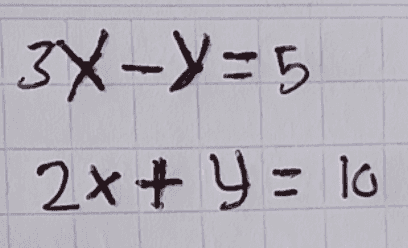 3x-y=5
2x+y=10